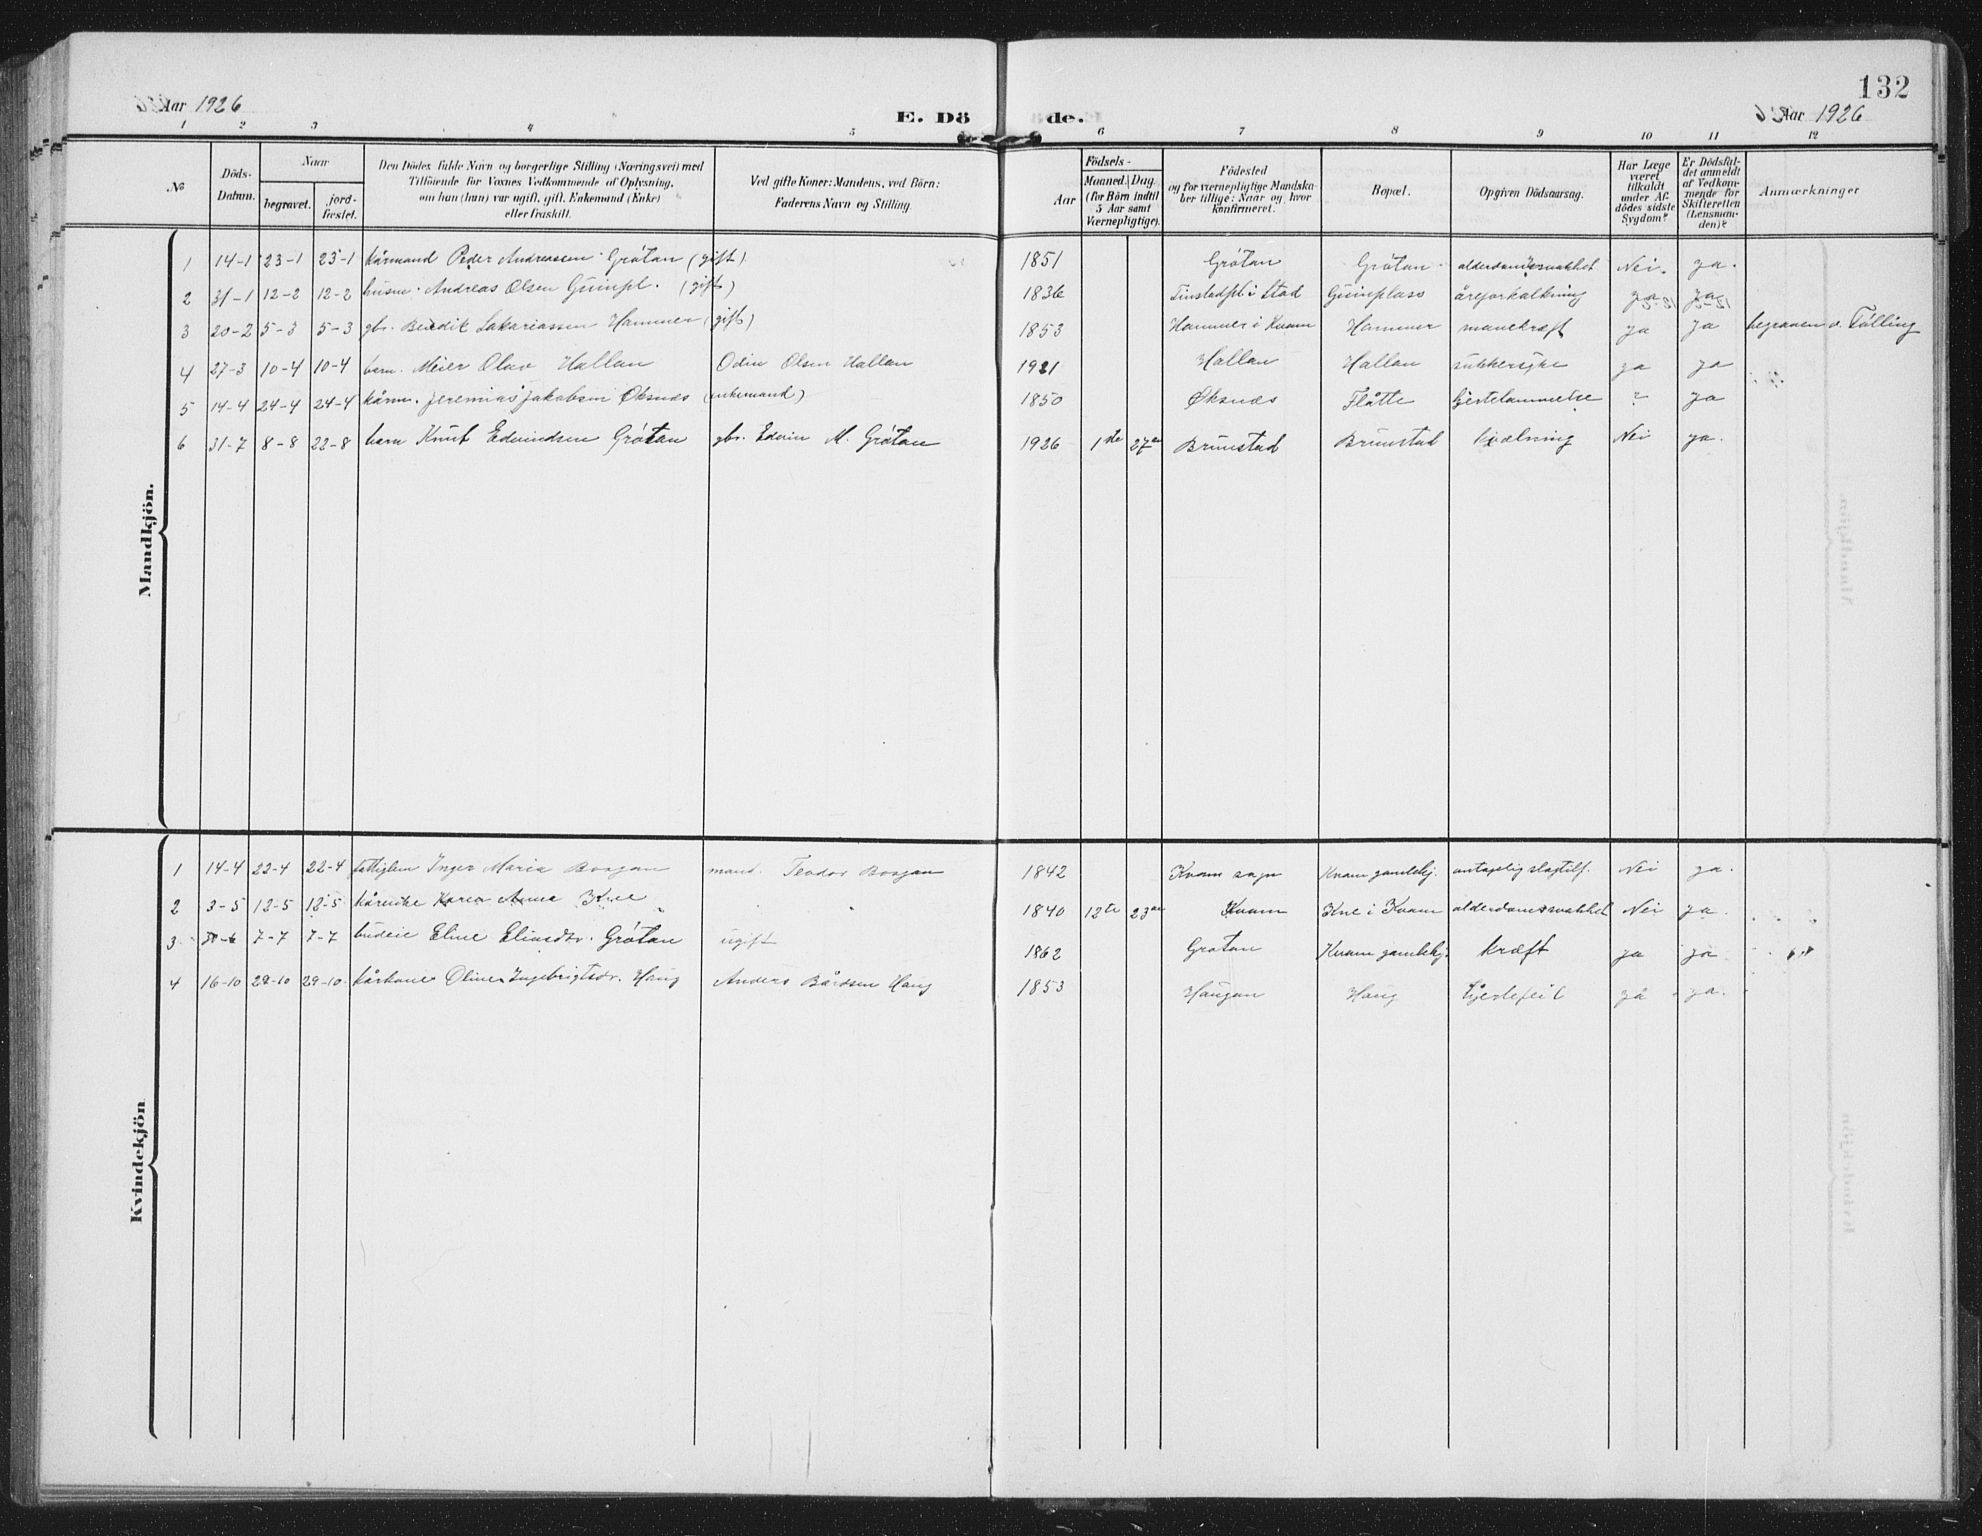 132
Aar 1926
E. Dö de.
Aar 1926
1 2 3 4 5 6 7 8 9 10 11 12
№
Döds-Datum.
Naar
begravet.
jord-fæstet.
Den Dödes fulde Navn og borgerlige Stilling (Næringsvei) med
Tilföiende for Voxnes Vedkommende af Oplysning,
om han (hun) var ugift, gift, Enkemand (Enke)
eller fraskilt.
Ved gifte Koner: Mandens, ved Börn:
Faderens Navn og Stilling.
Födsels-
Aar
Maaned. Dag.
(for Börn indtil
5 Aar samt
Værnepligtige).
Födested
og for værnepligtige Mandska-
ber tillige: Naar og hvor
konfirmeret.
Bopæl.
Opgiven Dödsaarsag.
Har Læge
været
tilkaldt
under Af-
dödes sidste
Sygdom?
Er Dödsfal-
det anmeldt
af Vedkom-
mende for
Skifteretten
(Lensman-
den)?
Anmærkninger
Mandkjön.
1 14-1 23-1 23-1 kårmand Peder Andreassen Grötan (gift) 1851 Grötan Grötan alderdomssvakhet Nei. ja.
2 31-1 12-2 12-2 husm. Andreas Olsen (gift) 1836 i Stad åreforkalkning ja ja
3 20-2 5-3 5-3 gbr. Bendik Sakariassen Hammer (gift) 1853 Hammer i Kvam Hammer mavekræft ja ja begraven v. Følling
4 27-3 10-4 10-4 barn. Meier Olav Hallan Odin Olsen Hallan 1921 Hallan Hallan sukkersyke ja ja
5 14-4 24-4 24-4 kårm. Jeremias Jakobsen Øksnes (enkemand) 1850 Øksnes Flåtte hjertelammelse ? ja
6 31-7 8-8 22-8 barn Knut Edvindsen Grötan gbr. Edvin M. Grötan 1926 1ste 27de Brunstad Brunstad kvælning Nei ja.
Kvindekjön
1 14-4 22-4 22-4 fattiglem Inger Maria Bragan mand. Teodor Bragan 1842 Kvam sogn Kvam gamlehj. antagelig slagtilf. Nei ja.
2 3-5 12-5 12-5 kårenke Karen Anna Kne 1840 12te 23de Kvam Kne i Kvam alderdomssvakhet Nei ja.
3 30-6 7-7 7-7 budeie Eline Eliasdtr. Grötan ugift 1862 Grotan Kvam gamlehj. kræft ja ja
4 16-10 29-10 29-10 kårkone Oline Ingebrigtsdr. Haug Anders Bårdsen Haug 1853 Haugan Haug hjertefeil ja ja.